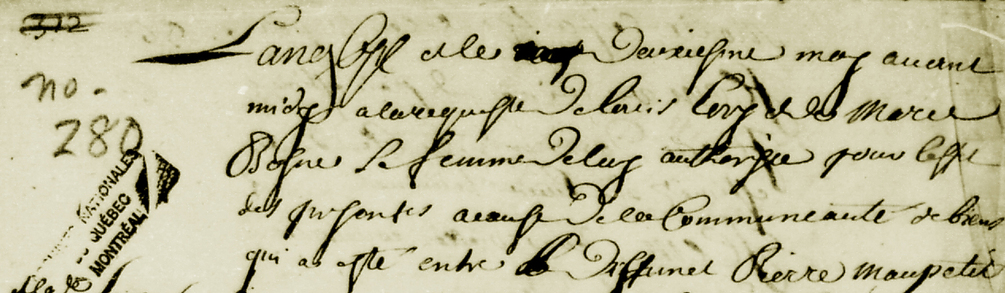 312
no.
280
NATIONALES
QUÉBEC
MONTRÉAL
et le Deuxiesme may avant
midy a la requeste de Louis et de Marie
sa femme de luy authorisée pour leffet
des presentes a cause de la Communeauté de biens
qui a esté entre Deffunct Pierre Maupetit